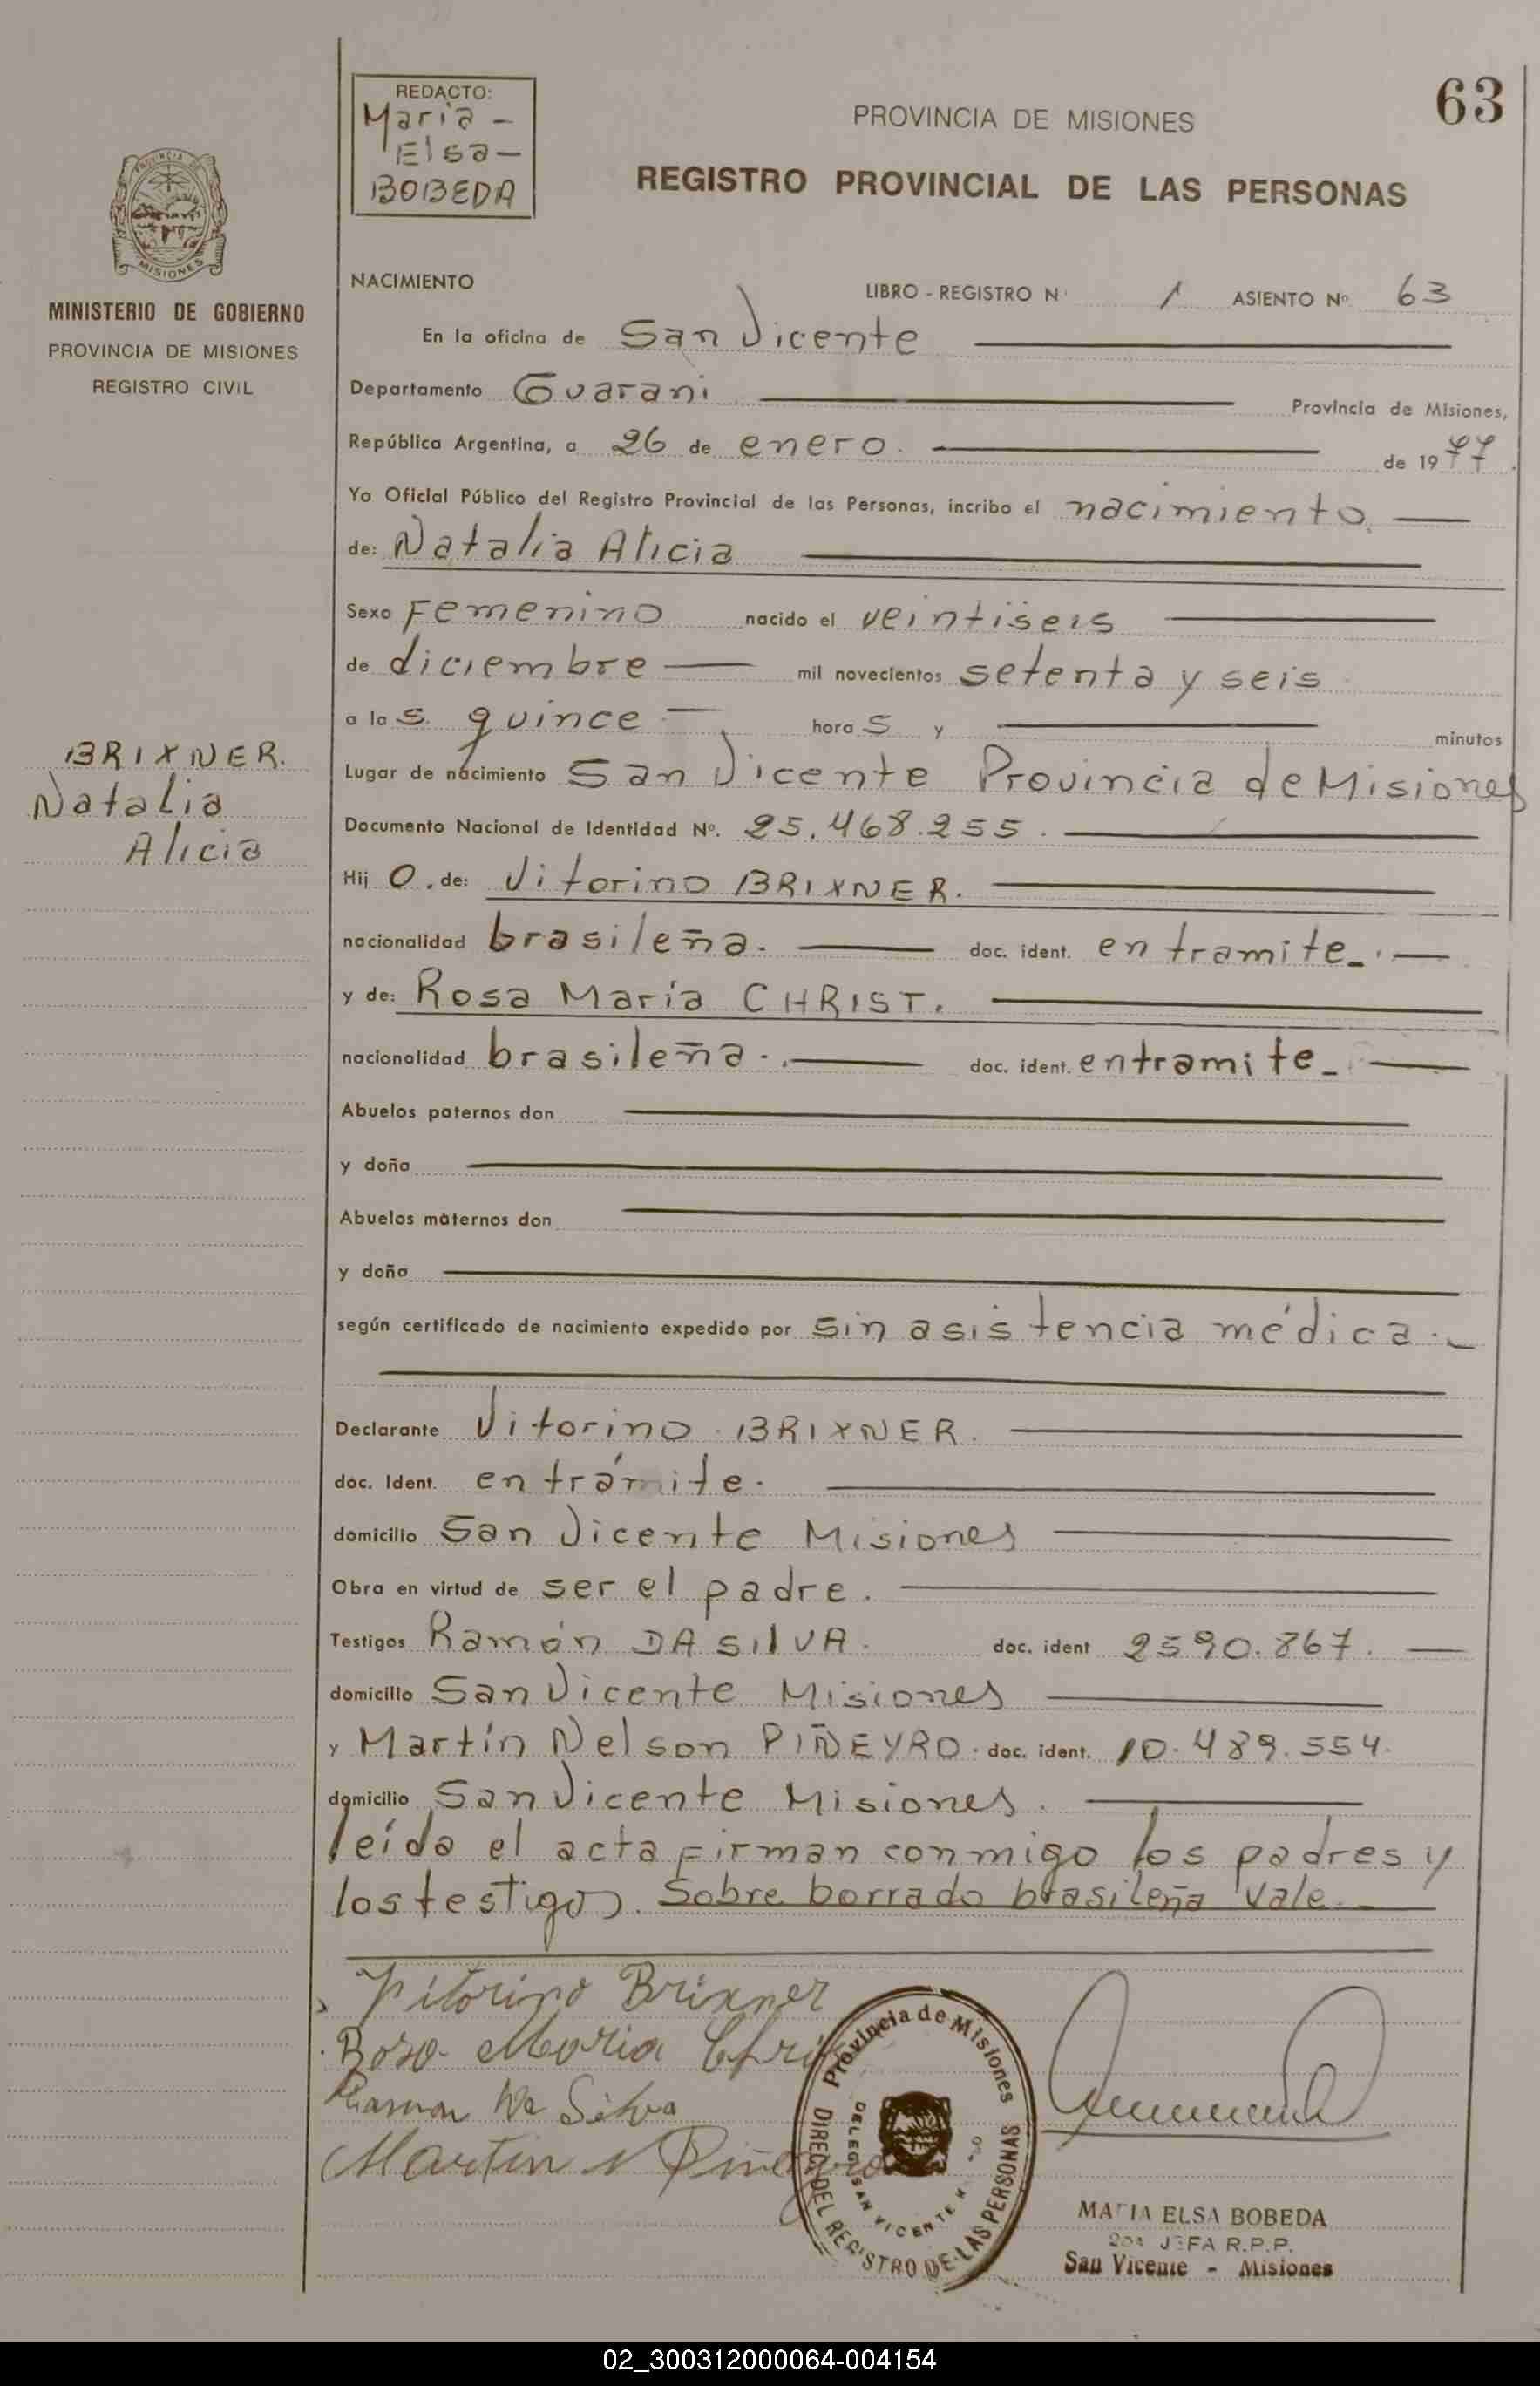 REDACTO:
Maria -
Elsa -
BOBEDA
63
PROVINCIA DE MISIONES
REGISTRO PROVINCIAL DE LAS PERSONAS
PROVINCIA DE
MISIONES
MINISTERIO DE GOBIERNO
PROVINCIA DE MISIONES
REGISTRO CIVIL
NACIMIENTO
LIBRO - REGISTRO N° 1 ASIENTO Nº 63
En la oficina de San Vicente
Departamento Guarani Provincia de Misiones,
República Argentina, a 26 de enero. de 1977.
Yo Oficial Público del Registro Provincial de las Personas, incribo el nacimiento.
de: Natalia Alicia
Sexo Femenino nacido el veintiseis
de diciembre mil novecientos setenta y seis
a las. quince hora s y minutos
BRIXNER.
Natalia
Alicia
Lugar de nacimiento San Vicente Provincia de Misiones
Documento Nacional de Identidad Nº. 25.468.255.
Hij o. de: Vitorino BRIXNER.
nacionalidad brasileña. doc. ident. en tramite_.
y de: Rosa María CHRIST.
nacionalidad brasileña.. doc. ident. entramite_
Abuelos paternos don
y doña
Abuelos maternos don
y doña
según certificado de nacimiento expedido por sin asistencia médica.
Declarante Vitorino BRIXNER.
doc. Ident. en trámite.
domicilio San Vicente Misiones
Obra en virtud de ser el padre.
Testigos Ramón DA SILVA. doc. ident 2590.867.
domicilio San Vicente Misiones
y Martín Nelson PIÑEYRO. doc. ident. 10.489.554.
domicilio San Vicente Misiones.
leída el acta firman conmigo los padres y
los testigos. Sobre borrado brasileña vale.
Vitorino Brixner
Rosa Maria Chris
Ramon Da Silva
Martin N Piñeyro
Provincia de Misiones
DIREC. DEL REGISTRO DE LAS PERSONAS
DELEG. SAN VICENTE
MARIA ELSA BOBEDA
2da JEFA R.P.P.
San Vicente - Misiones
02_300312000064-004154